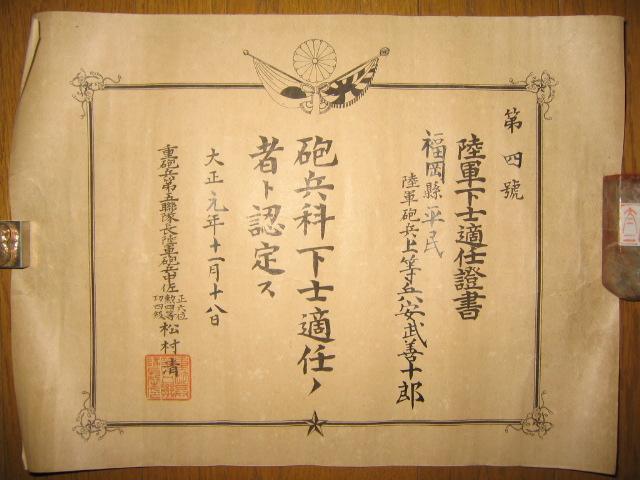 第四號
陸軍下士適任證書
福岡縣平民
陸軍砲兵上等兵安武善十郎
砲兵科下士適任ノ
者ト認定ス
大正元年十一月十八日
重砲兵第五聯隊長陸軍砲兵中佐正六位勲四等功四級松村清